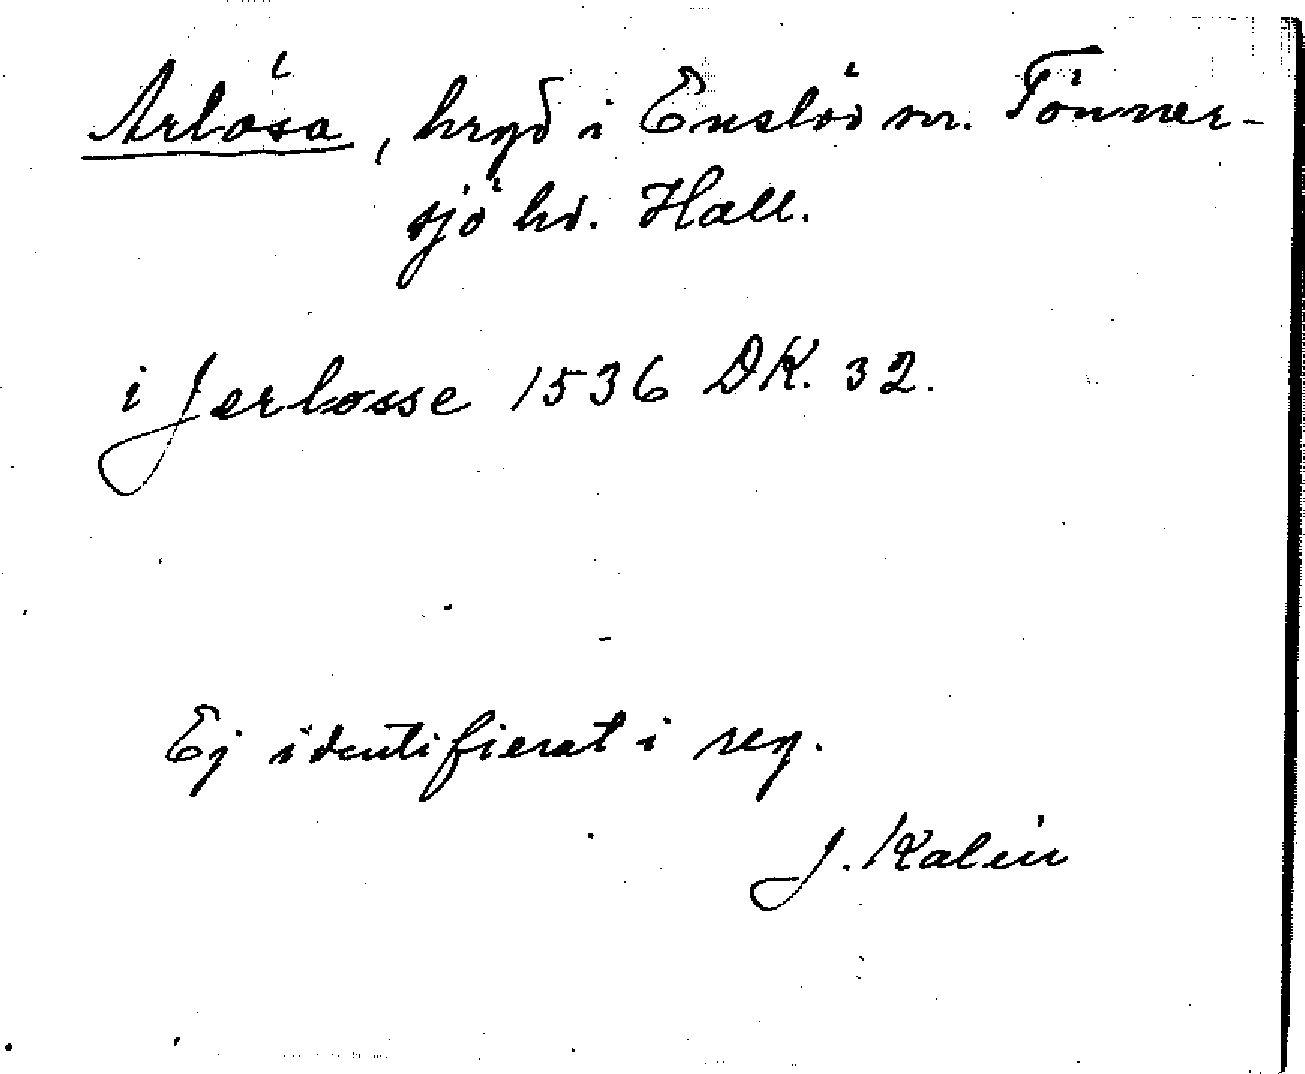 Arlösa, bryd i Enslöv sn. Tönner-
sjö hd. Hall.
i Jerløsse 1536 DK. 32.
Ej identifierat i reg.
J. Kalén